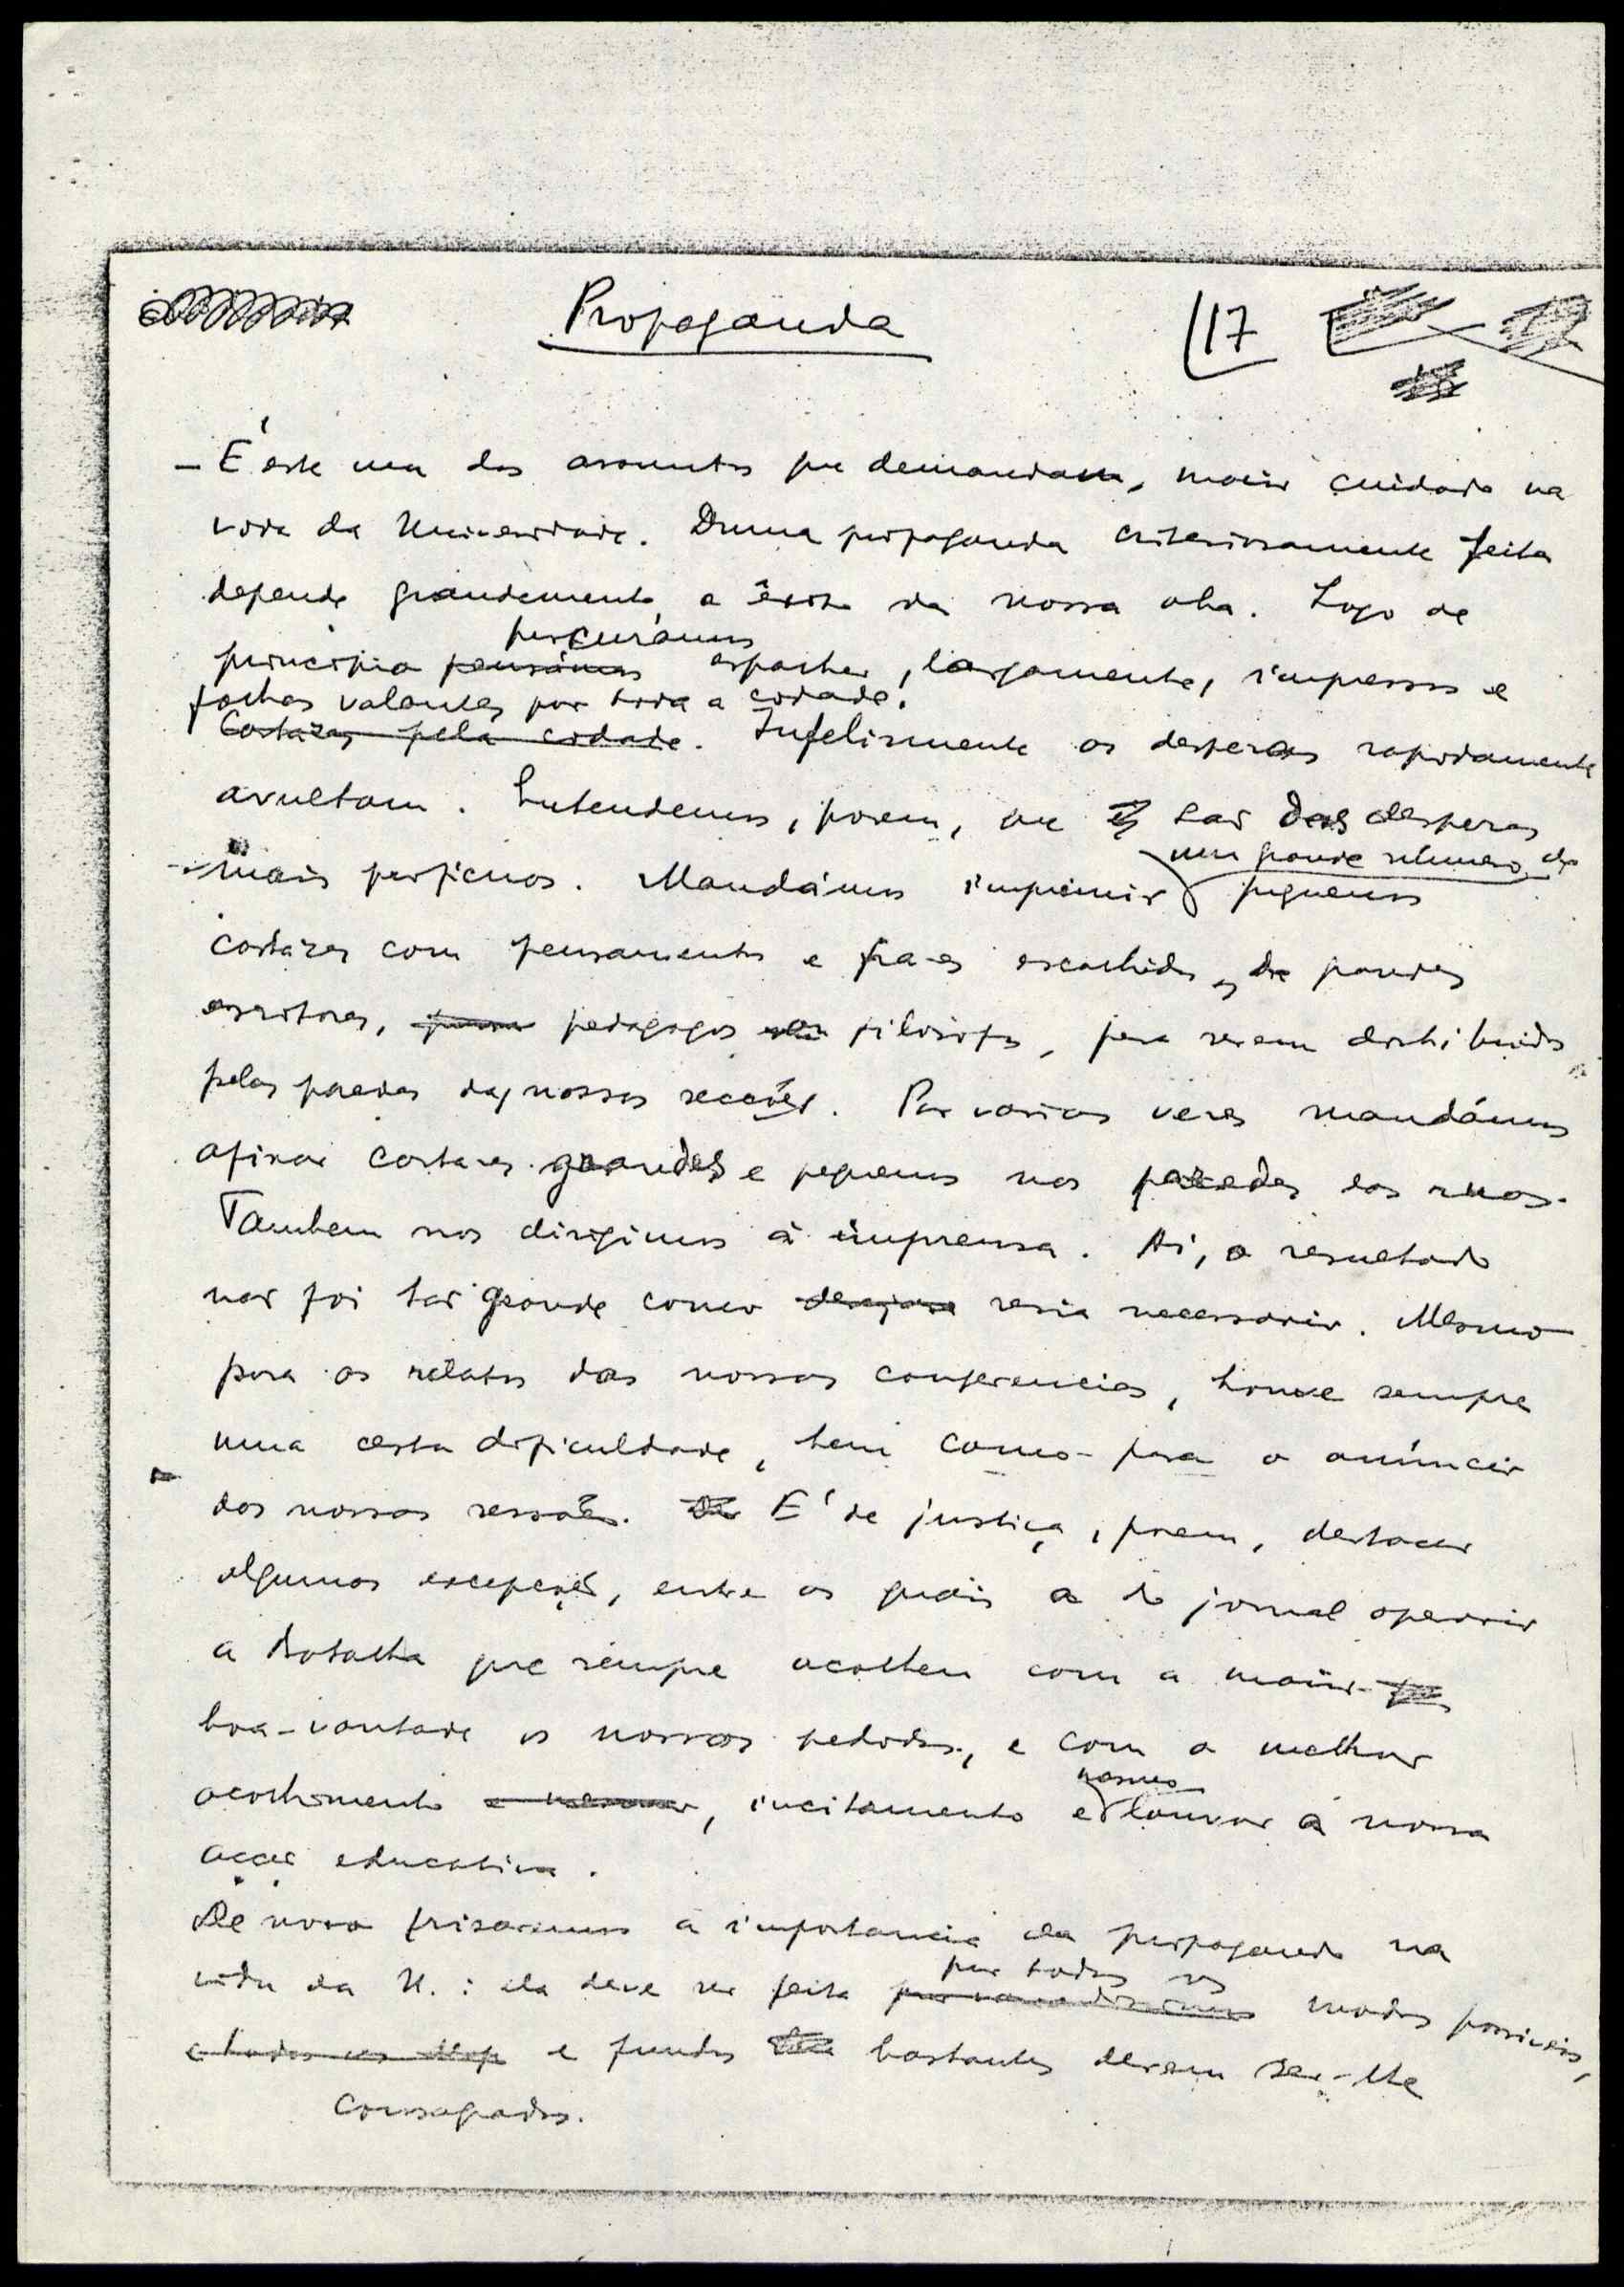 Propaganda
17
- É este um dos assuntos que demandam, maior cuidado na
vida da Universidade. Duma propaganda criteriosamente feita
depende grandemente o êxito da nossa obra. Logo de
procurámos
principio pensámos espalhar, largamente, impressos e
folhas volantes por toda a cidade.
Cartazes pela cidade. Infelizmente as despesas rapidamente
avultam. Entendemos, porem, que são das despesas
um grande numero de
mais proficuas. Mandámos imprimir pequenos
cartazes com pensamentos e frases escolhidas, de grandes
escritores, pedagogos filosofos, para serem distribuidos
pelas paredes das nossas secções. Por varias vezes mandámos
afixar cartazes grandes e pequenos nas paredes das ruas.
Tambem nos dirigimos á imprensa. Ai, o resultado
não foi tão grande como desejava seria necessario. Mesmo
para os relatos das nossas conferencias, houve sempre
uma certa dificuldade, bem como para o anúncio
das nossas sessões. É de justiça, porem, destacar
algumas excepções, entre as quais a do jornal operario
a Batalha que sempre acolheu com a maior
boa-vontade os nossos pedidos, e com o melhor
mesmo
acolhimento, incitamento e louvor á nossa
acção educativa.
De novo frisaremos a importancia da propaganda na
por todos os
vida da U.: ela deve ser feita modos possiveis,
e todos os e fundos bastantes devem ser-lhe
consagrados.